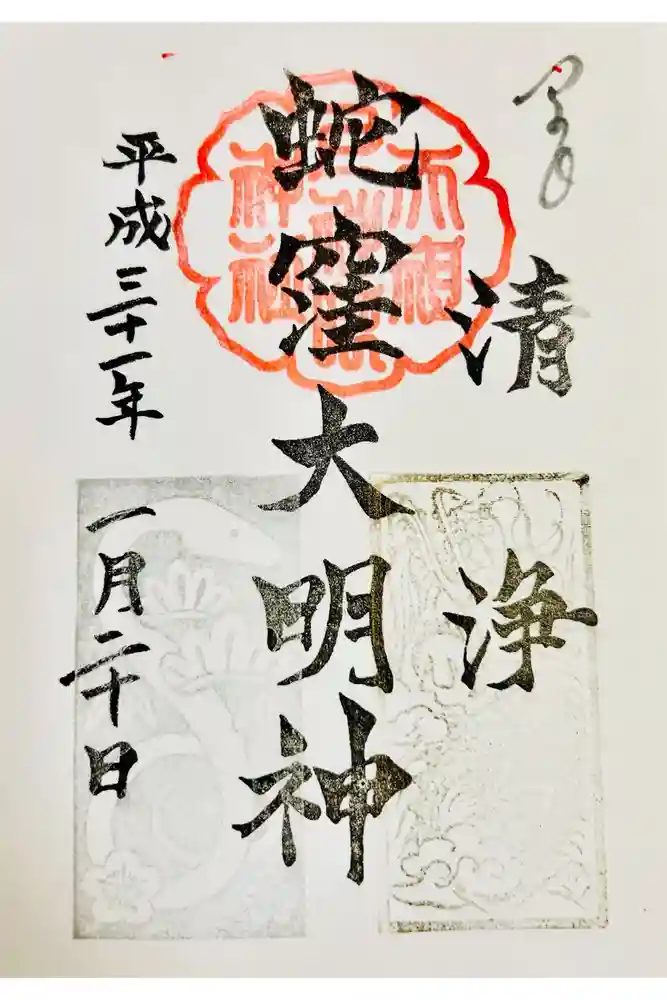 清浄
蛇窪大明神
平成三十一年
一月二十日